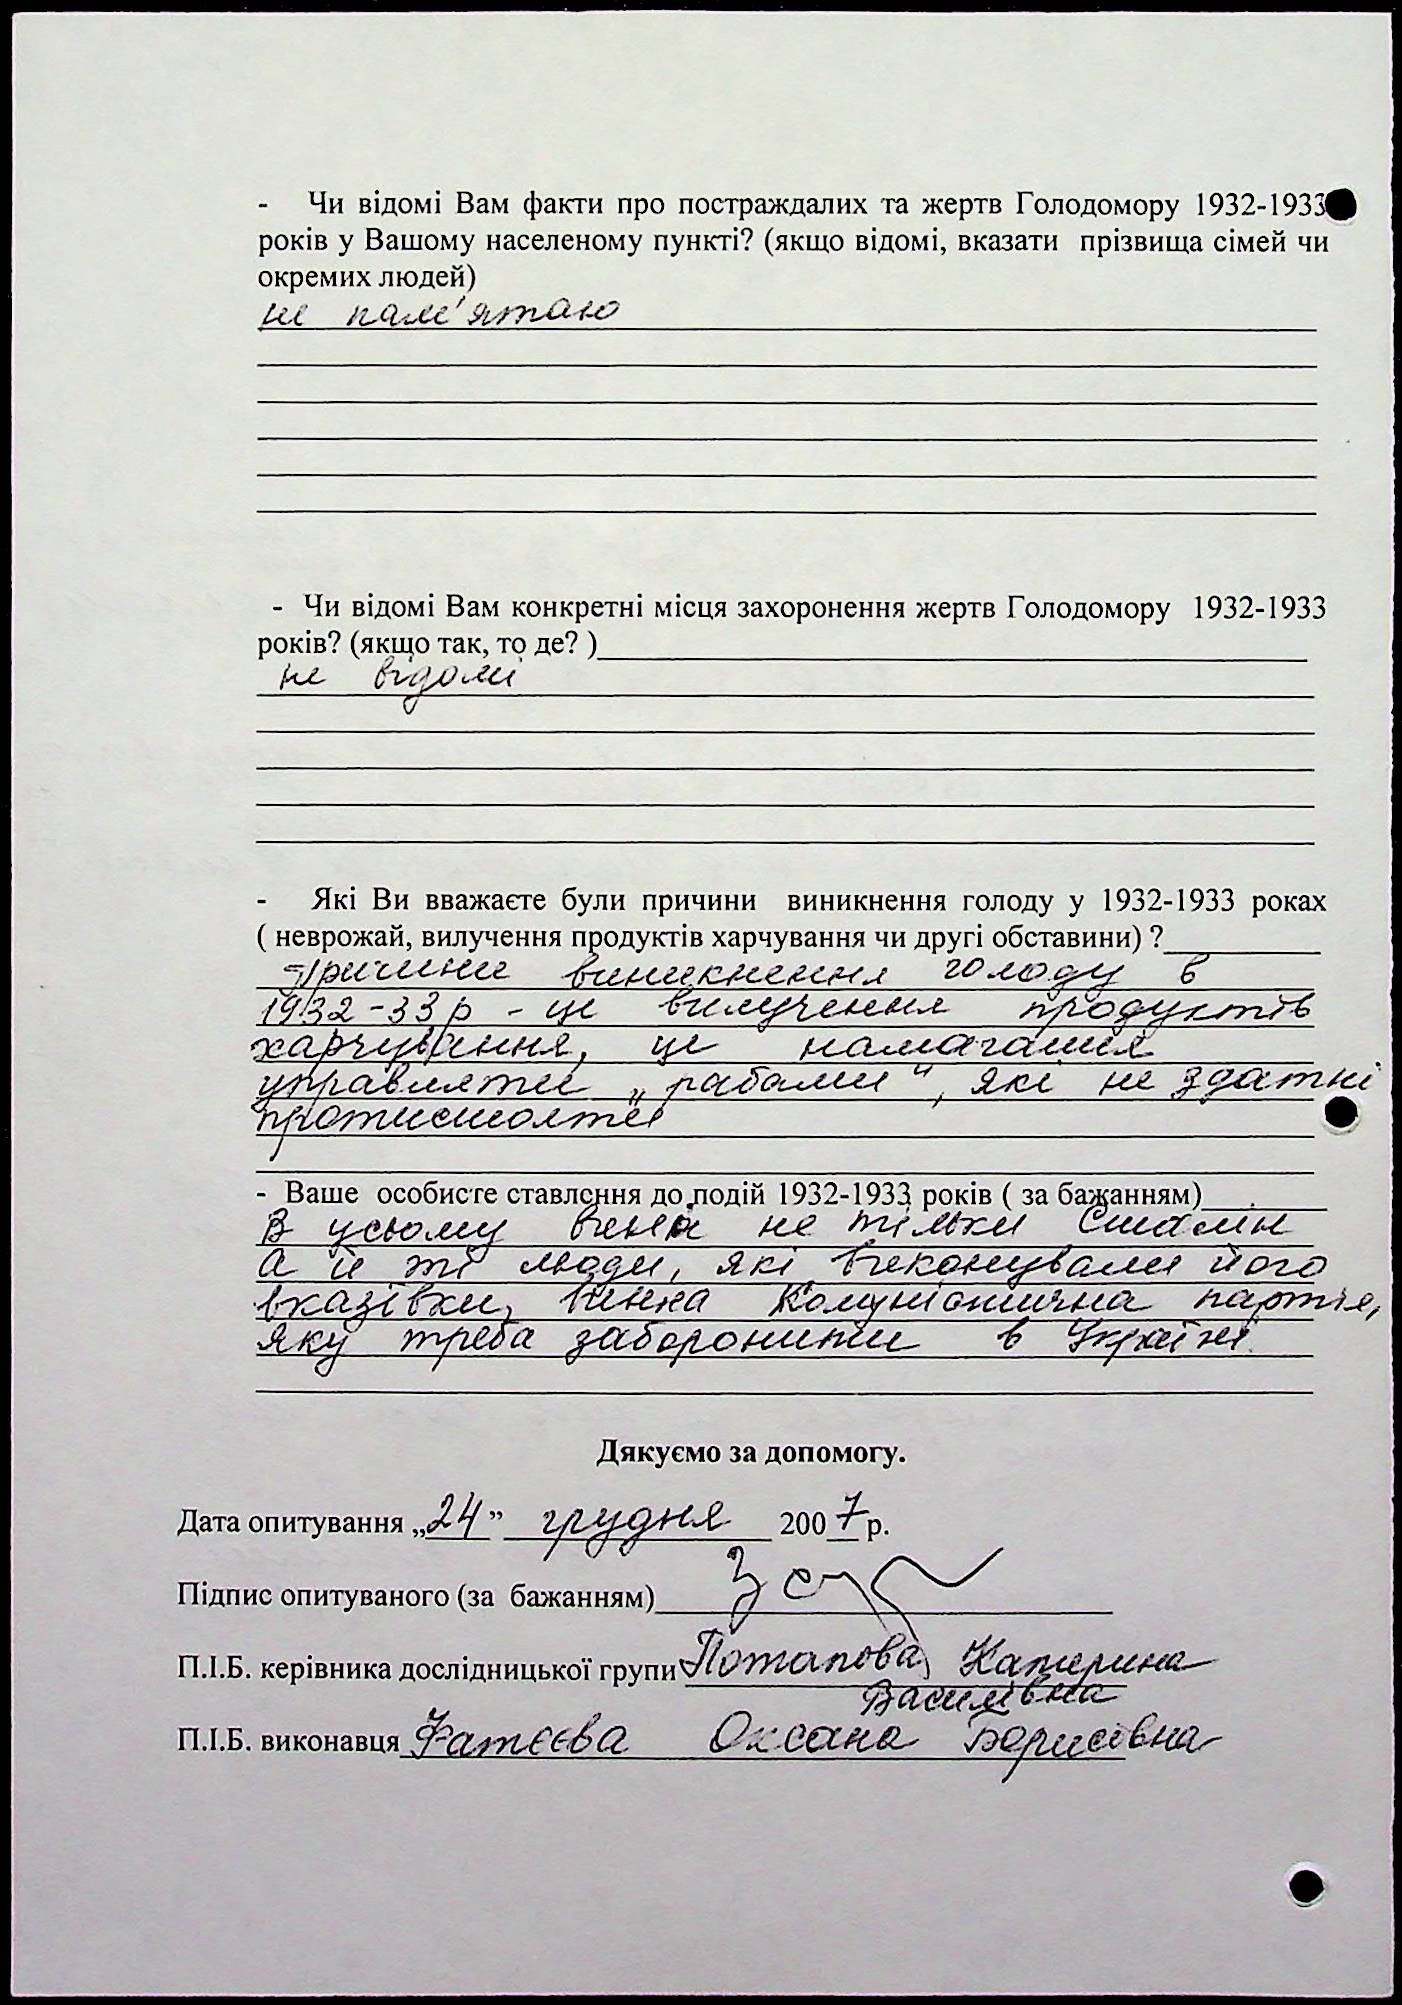 - Чи відомі Вам факти про постраждалих та жертв Голодомору 1932-1933
років у Вашому населеному пункті? (якщо відомі, вказати прізвища сімей чи
окремих людей)
не пам'ятаю
- Чи відомі Вам конкретні місця захоронення жертв Голодомору 1932-1933
років? (якщо так, то де? )
не відомі
- Які Ви вважаєте були причини виникнення голоду у 1932-1933 роках
( неврожай, вилучення продуктів харчування чи другі обставини) ?
Причини виникнення голоду в
1932-33р - це вилучення продуктів
харчування, це намагання
управляти „рабами", які не здатні
протистояти
- Ваше особисте ставлення до подій 1932-1933 років ( за бажанням)
В усьому винен не тільки Сталін
а й ті люди, які виконували його
вказівки, винна Комуністична партія,
яку треба заборонити в Україні.
Дякуємо за допомогу.
Дата опитування „24” грудня 2007р.
Підпис опитуваного (за бажанням)
П.І.Б. керівника дослідницької групи Потапова Катерина
Василівна
П.І.Б. виконавця Фатєєва Оксана Борисівна